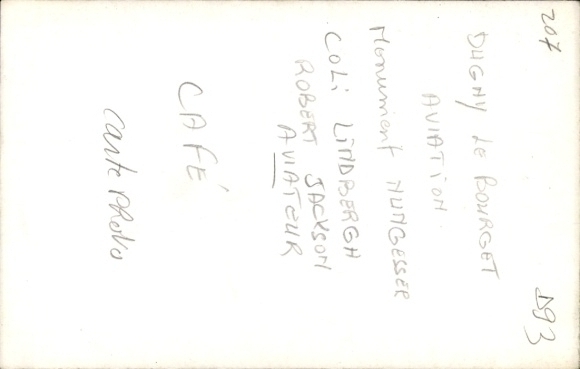 207 D93
DUGNY Le BOURGET
AVIATION
Monument NUNGESSER
COLi LiNDBERGH
ROBERT JACKSON
AVIATEUR
CAFÉ
Carte Photo